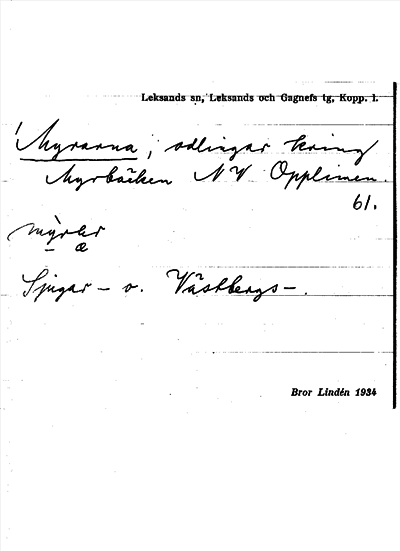 Leksands sn, Leksands och Gagnefs tg, Kopp. l.
Myrarna, odlingar kring
Myrbäcken NV Opplimen.
61.
Sjugar- o. Västbergs-.
Bror Lindén 1934